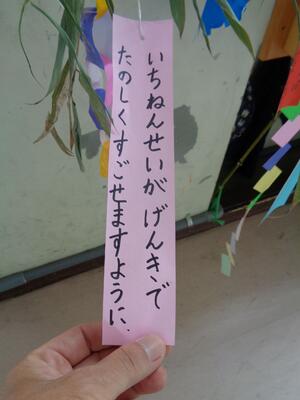 いちねんせいが げんきで
たのしく すごせますように.